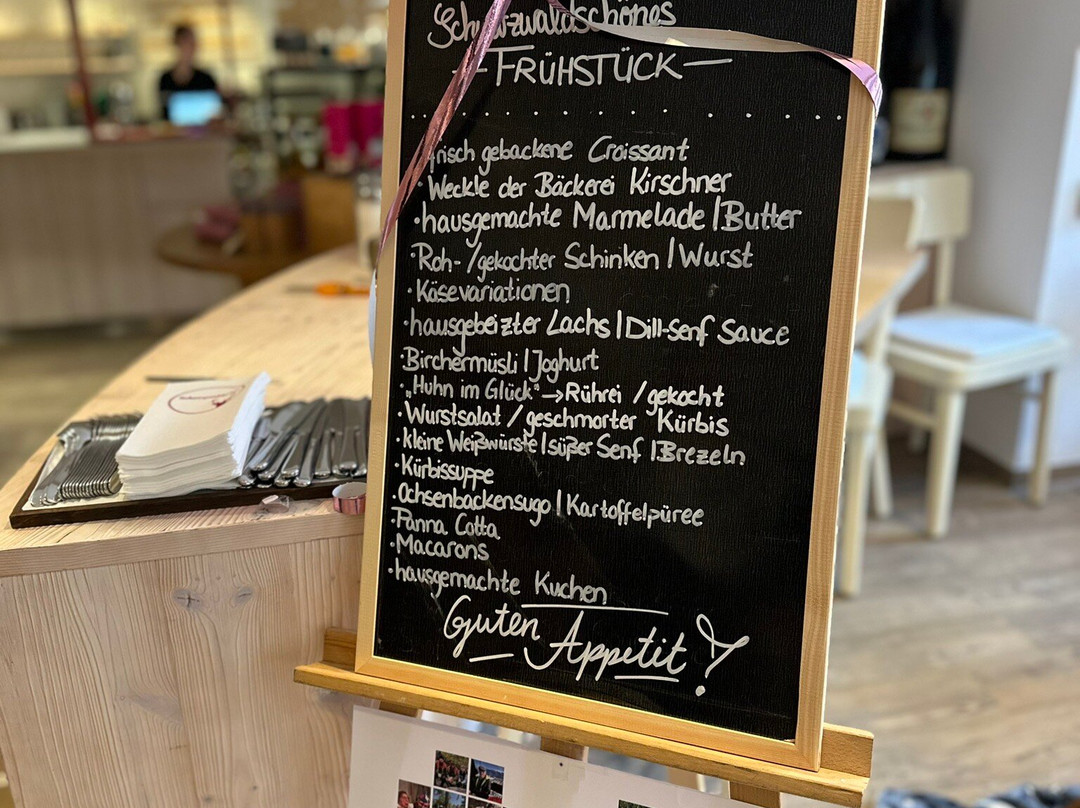 Schwarzwaldschönes
— FRÜHSTÜCK —
. . . . . . . . . . . . . . .
frisch gebackene Croissant
· Weckle der Bäckerei Kirschner
· hausgemachte Marmelade | Butter
· Roh- / gekochter Schinken | Wurst
· Käsevariationen
· hausgebeizter Lachs | Dill-Senf Sauce
· Birchermüsli | Joghurt
· „Huhn im Glück" → Rührei / gekocht
· Wurstsalat / geschmorter Kürbis
· kleine Weißwürste | süßer Senf | Brezeln
· Kürbissuppe
· Ochsenbackensugo | Kartoffelpüree
· Panna Cotta
· Macarons
· hausgemachte Kuchen
Guten Appetit!